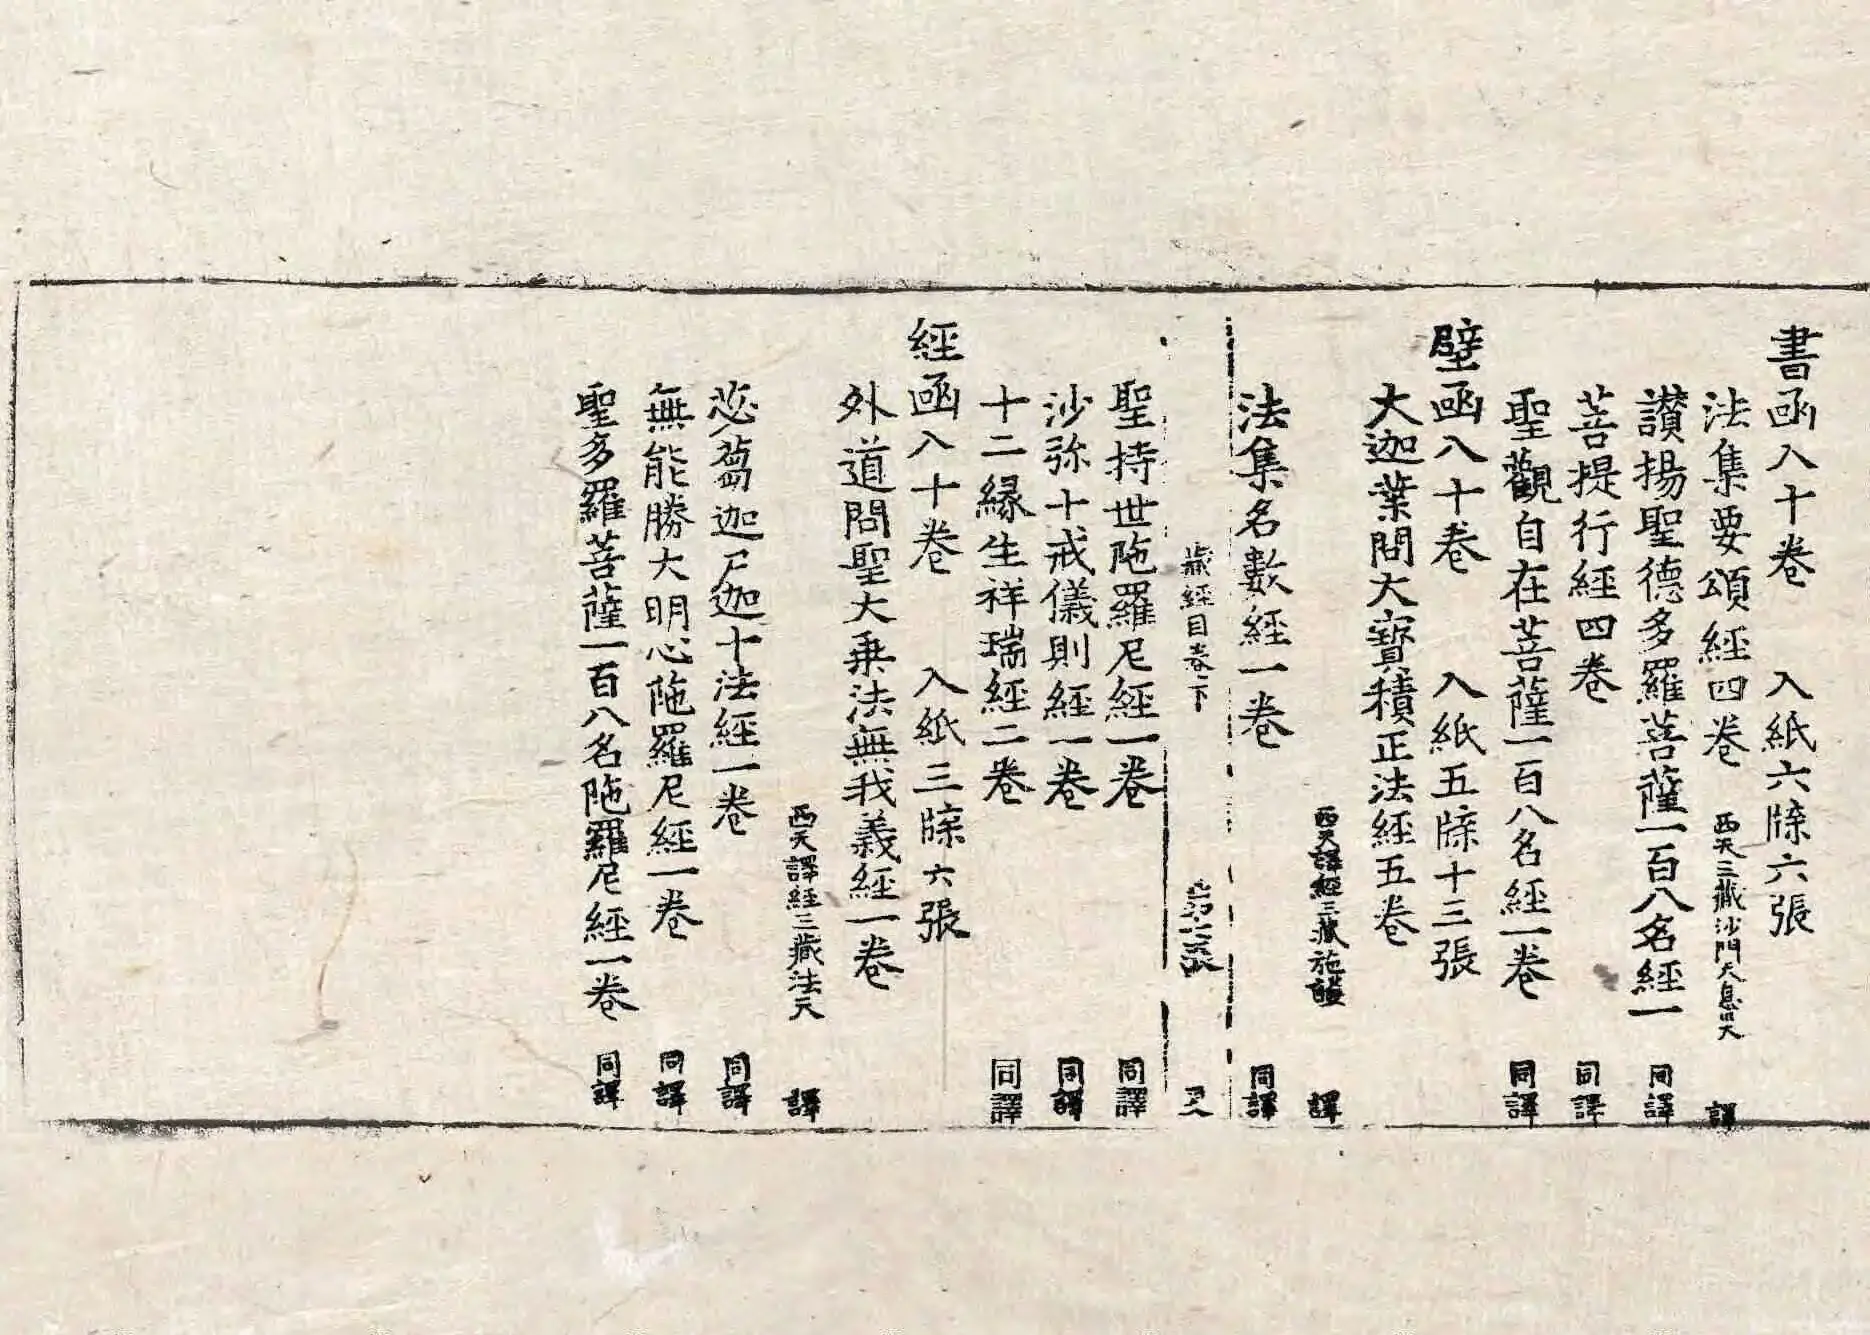 書函入十卷　入紙六牒六張
法集要頌經四卷　西天三藏沙門天息災　譯
讃揚聖德多羅菩薩一百八名經一　同譯
菩提行經四卷　同譯
聖觀自在菩薩一百八名經一卷　同譯
壁函入十卷　入紙五牒十三張
大迦葉問大寶積正法經五卷
西天譯經三藏施護　譯
法集名數經一卷　同譯
藏經目卷下
聖持世陁羅尼經一卷　同譯
沙弥十戒儀則經一卷　同譯
十二縁生祥瑞經二卷　同譯
經函入十卷　入紙三牒六張
外道問聖大乗法無我義經一卷
西天譯經三藏法天　譯
苾蒭迦尸迦十法經一卷　同譯
無能勝大明心陁羅尼經一卷　同譯
聖多羅菩薩一百八名陁羅尼經一卷　同譯